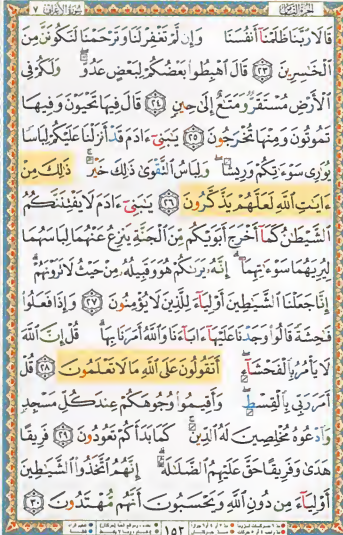 الجزء الثامن سورة الأعراف ٧
قَالَا رَبَّنَا ظَلَمْنَا أَنفُسَنَا وَإِن لَّمْ تَغْفِرْ لَنَا وَتَرْحَمْنَا لَنَكُونَنَّ مِنَ
ٱلْخَٰسِرِينَ ٢٣ قَالَ ٱهْبِطُوا۟ بَعْضُكُمْ لِبَعْضٍ عَدُوٌّ وَلَكُمْ فِى
ٱلْأَرْضِ مُسْتَقَرٌّ وَمَتَٰعٌ إِلَىٰ حِينٍ ٢٤ قَالَ فِيهَا تَحْيَوْنَ وَفِيهَا
تَمُوتُونَ وَمِنْهَا تُخْرَجُونَ ٢٥ يَٰبَنِىٓ ءَادَمَ قَدْ أَنزَلْنَا عَلَيْكُمْ لِبَاسًا
يُوَٰرِى سَوْءَٰتِكُمْ وَرِيشًا وَلِبَاسُ ٱلتَّقْوَىٰ ذَٰلِكَ خَيْرٌ ذَٰلِكَ مِنْ
ءَايَٰتِ ٱللَّهِ لَعَلَّهُمْ يَذَّكَّرُونَ ٢٦ يَٰبَنِىٓ ءَادَمَ لَا يَفْتِنَنَّكُمُ
ٱلشَّيْطَٰنُ كَمَآ أَخْرَجَ أَبَوَيْكُم مِّنَ ٱلْجَنَّةِ يَنزِعُ عَنْهُمَا لِبَاسَهُمَا
لِيُرِيَهُمَا سَوْءَٰتِهِمَآ إِنَّهُۥ يَرَىٰكُمْ هُوَ وَقَبِيلُهُۥ مِنْ حَيْثُ لَا تَرَوْنَهُمْ
إِنَّا جَعَلْنَا ٱلشَّيَٰطِينَ أَوْلِيَآءَ لِلَّذِينَ لَا يُؤْمِنُونَ ٢٧ وَإِذَا فَعَلُوا۟
فَٰحِشَةً قَالُوا۟ وَجَدْنَا عَلَيْهَآ ءَابَآءَنَا وَٱللَّهُ أَمَرَنَا بِهَا قُلْ إِنَّ ٱللَّهَ
لَا يَأْمُرُ بِٱلْفَحْشَآءِ أَتَقُولُونَ عَلَى ٱللَّهِ مَا لَا تَعْلَمُونَ ٢٨ قُلْ
أَمَرَ رَبِّى بِٱلْقِسْطِ وَأَقِيمُوا۟ وُجُوهَكُمْ عِندَ كُلِّ مَسْجِدٍ
وَٱدْعُوهُ مُخْلِصِينَ لَهُ ٱلدِّينَ كَمَا بَدَأَكُمْ تَعُودُونَ ٢٩ فَرِيقًا
هَدَىٰ وَفَرِيقًا حَقَّ عَلَيْهِمُ ٱلضَّلَٰلَةُ إِنَّهُمُ ٱتَّخَذُوا۟ ٱلشَّيَٰطِينَ
أَوْلِيَآءَ مِن دُونِ ٱللَّهِ وَيَحْسَبُونَ أَنَّهُم مُّهْتَدُونَ ٣٠
١٥٣